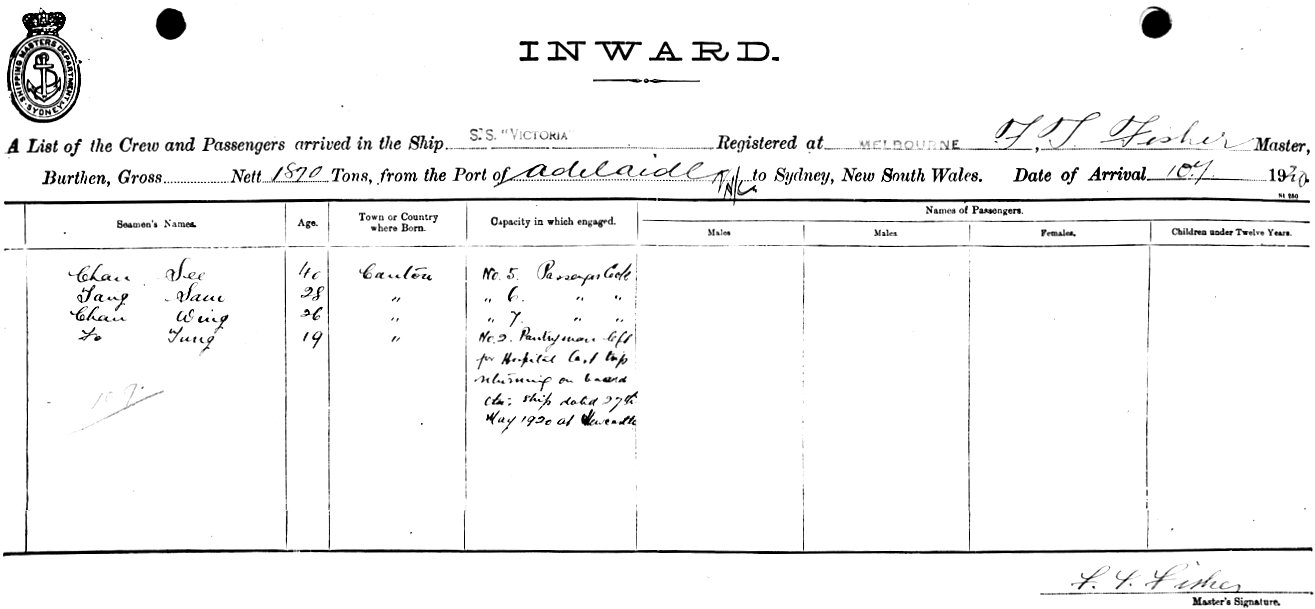 SHIPPING MASTERS DEPARTMENT SYDNEY
INWARD.
A List of the Crew and Passengers arrived in the Ship S.S. "VICTORIA" Registered at MELBOURNE F. T. Fisher Master,
Burthen, Gross Nett 1870 Tons, from the Port of Adelaide to Sydney, New South Wales. Date of Arrival 1920.
Seamen's Names. Age. Town or Country where Born. Capacity in which engaged. Names of Passengers.
Males Males Females. Children under Twelve Years.
Chan See 40 Canton No. 5. Passenger Cook
Tang Sam 28 " " 6. " "
Chan Wing 26 " " 7. " "
Fo Tung 19 " No. 2. Pantryman left
for Hospital Last trip
returning on board
ship dated 27th
May 1920 at Newcastle
109.
Master's Signature.